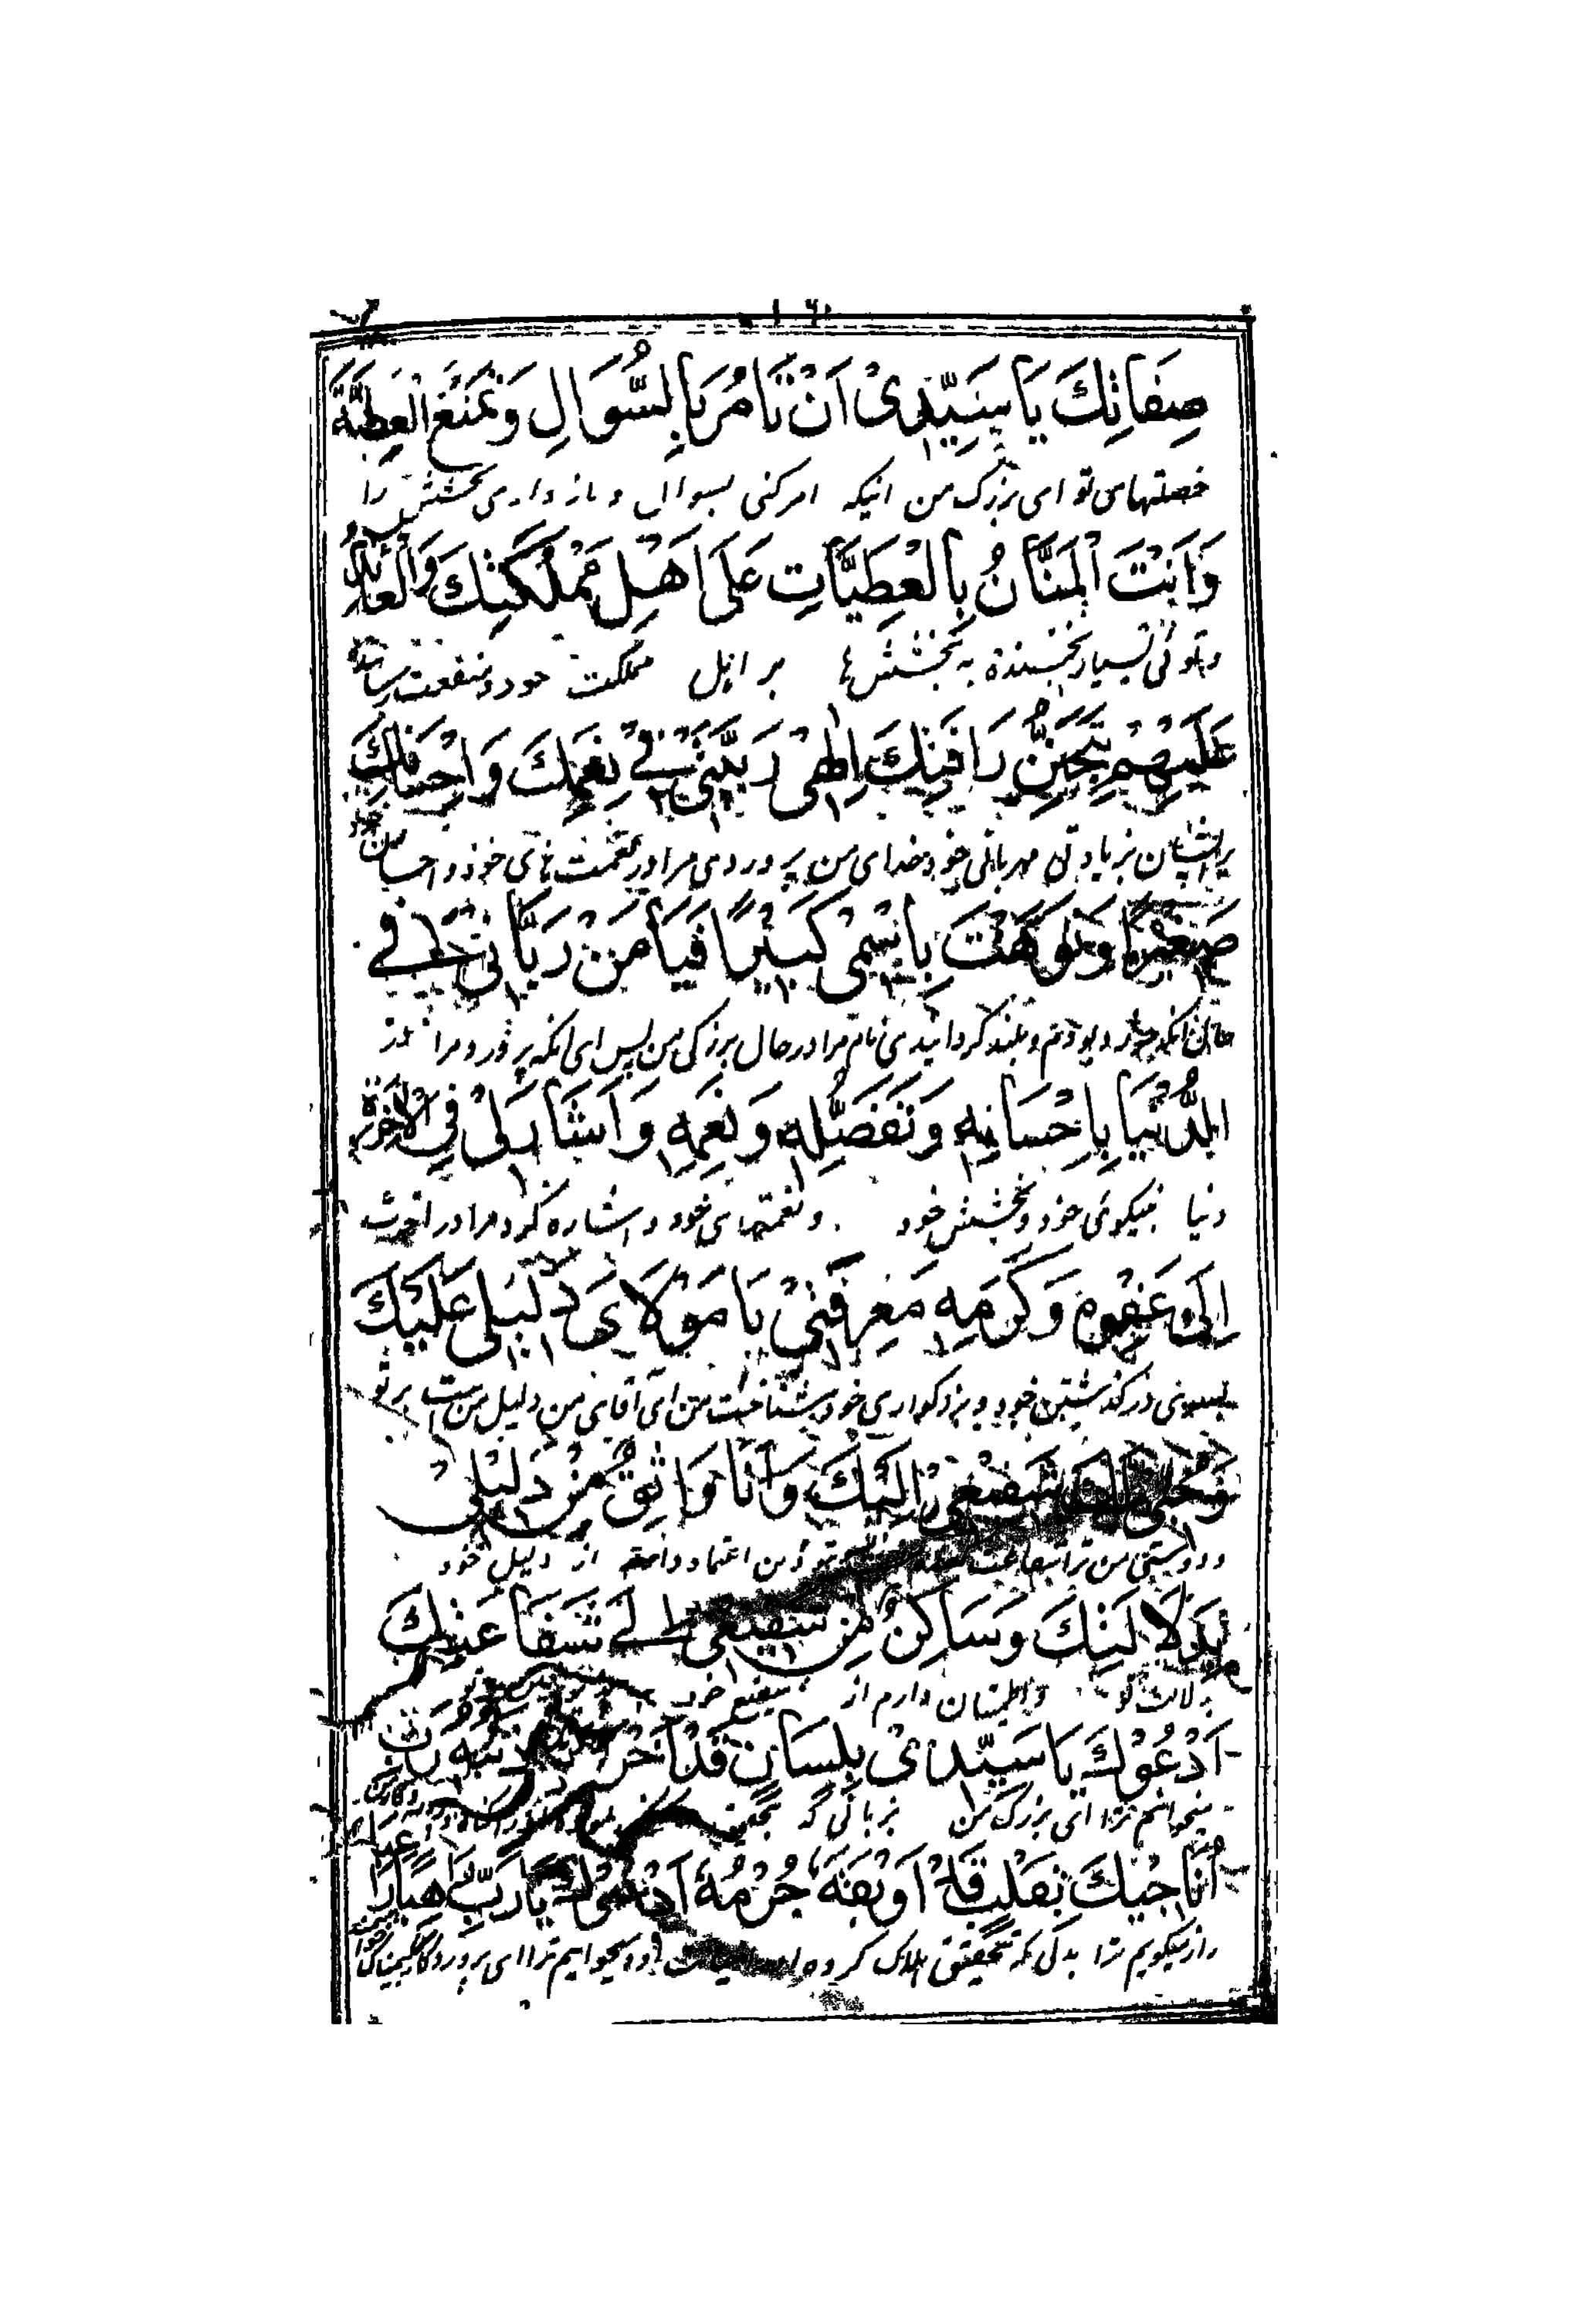 صِفَاتِكَ يَا سَيِّدِىْ اَنْ تَاْمُرَ بِالسُّوَالِ وَتَمْنَعَ الْعَطِيَّةَ
خصلتهای تو ای بزرک من انیکه امر کنی بسوال و باز داری بخشش را
وَاَنْتَ الْمَنَّانُ بِالْعَطِيَّاتِ عَلَى اَهْلِ مَمْلَكَتِكَ وَالْعَائِدُ
و توئی بسیار بخشنده به بخششها بر اهل مملکت خود و منفعت رساننده
عَلَيْهِمْ بِتَحَنُّنِ رَافَتِكَ اِلٰهِىْ رَبَّيْتَنِىْ فِىْ نِعَمِكَ وَاِحْسَانِكَ
بر ایشان بزیادتی مهربانی خود خدای من پروردی مرا در نعمت های خود و احسان خود
صَغِيْرًا وَنَوَّهْتَ بِاسْمِىْ كَبِيْرًا فَيَا مَنْ رَبَّانِىْ فِى
بودم و بلند کردانیدی نام مرا در حال بزرکی من پس ای انکه پرورد مرا در
الدُّنْيَا بِاِحْسَانِهٖ وَتَفَضُّلِهٖ وَنِعَمِهٖ وَاَشَارَ لِىْ فِى الْاٰخِرَةِ
دنیا بنیکوئی خود و بخشش خود و نعمتهای خود و اشاره کرد مرا در اخرت
اِلٰى عَفْوِهٖ وَكَرَمِهٖ مَعْرِفَتِىْ يَا مَوْلَاىَ دَلِيْلِىْ عَلَيْكَ
بسوی در کذشتن خود و بزرکواری خود شناخت من ای آقای من دلیل من ست بر تو
وَحُبِّىْ لَكَ شَفِيْعِىْ اِلَيْكَ وَاَنَا وَاثِقٌ مِنْ دَلِيْلِىْ
و دوستی من ترا من اعتماد از دلیل خود
بِدَلَالَتِكَ وَسَاكِنٌ مِنْ شَفِيْعِىْ اِلٰى شَفَاعَتِكَ
بدلالت تو و اطمینان دارم از شفیع خود
اَدْعُوْكَ يَا سَيِّدِىْ بِلِسَانٍ قَدْ اَخْرَسَهٗ ذَنْبُهٗ رَبِّ
میخوانم ترا ای بزرک من بزبانی که بتحقیق
اُنَاجِيْكَ بِقَلْبٍ قَدْ اَوْبَقَهٗ جُرْمُهٗ اَدْعُوْكَ يَا رَبِّ رَاهِبًا رَاغِبًا
راز میکویم ترا بدلی که بتحقیق هلاک کرده میخوانم ترا ای پروردکار